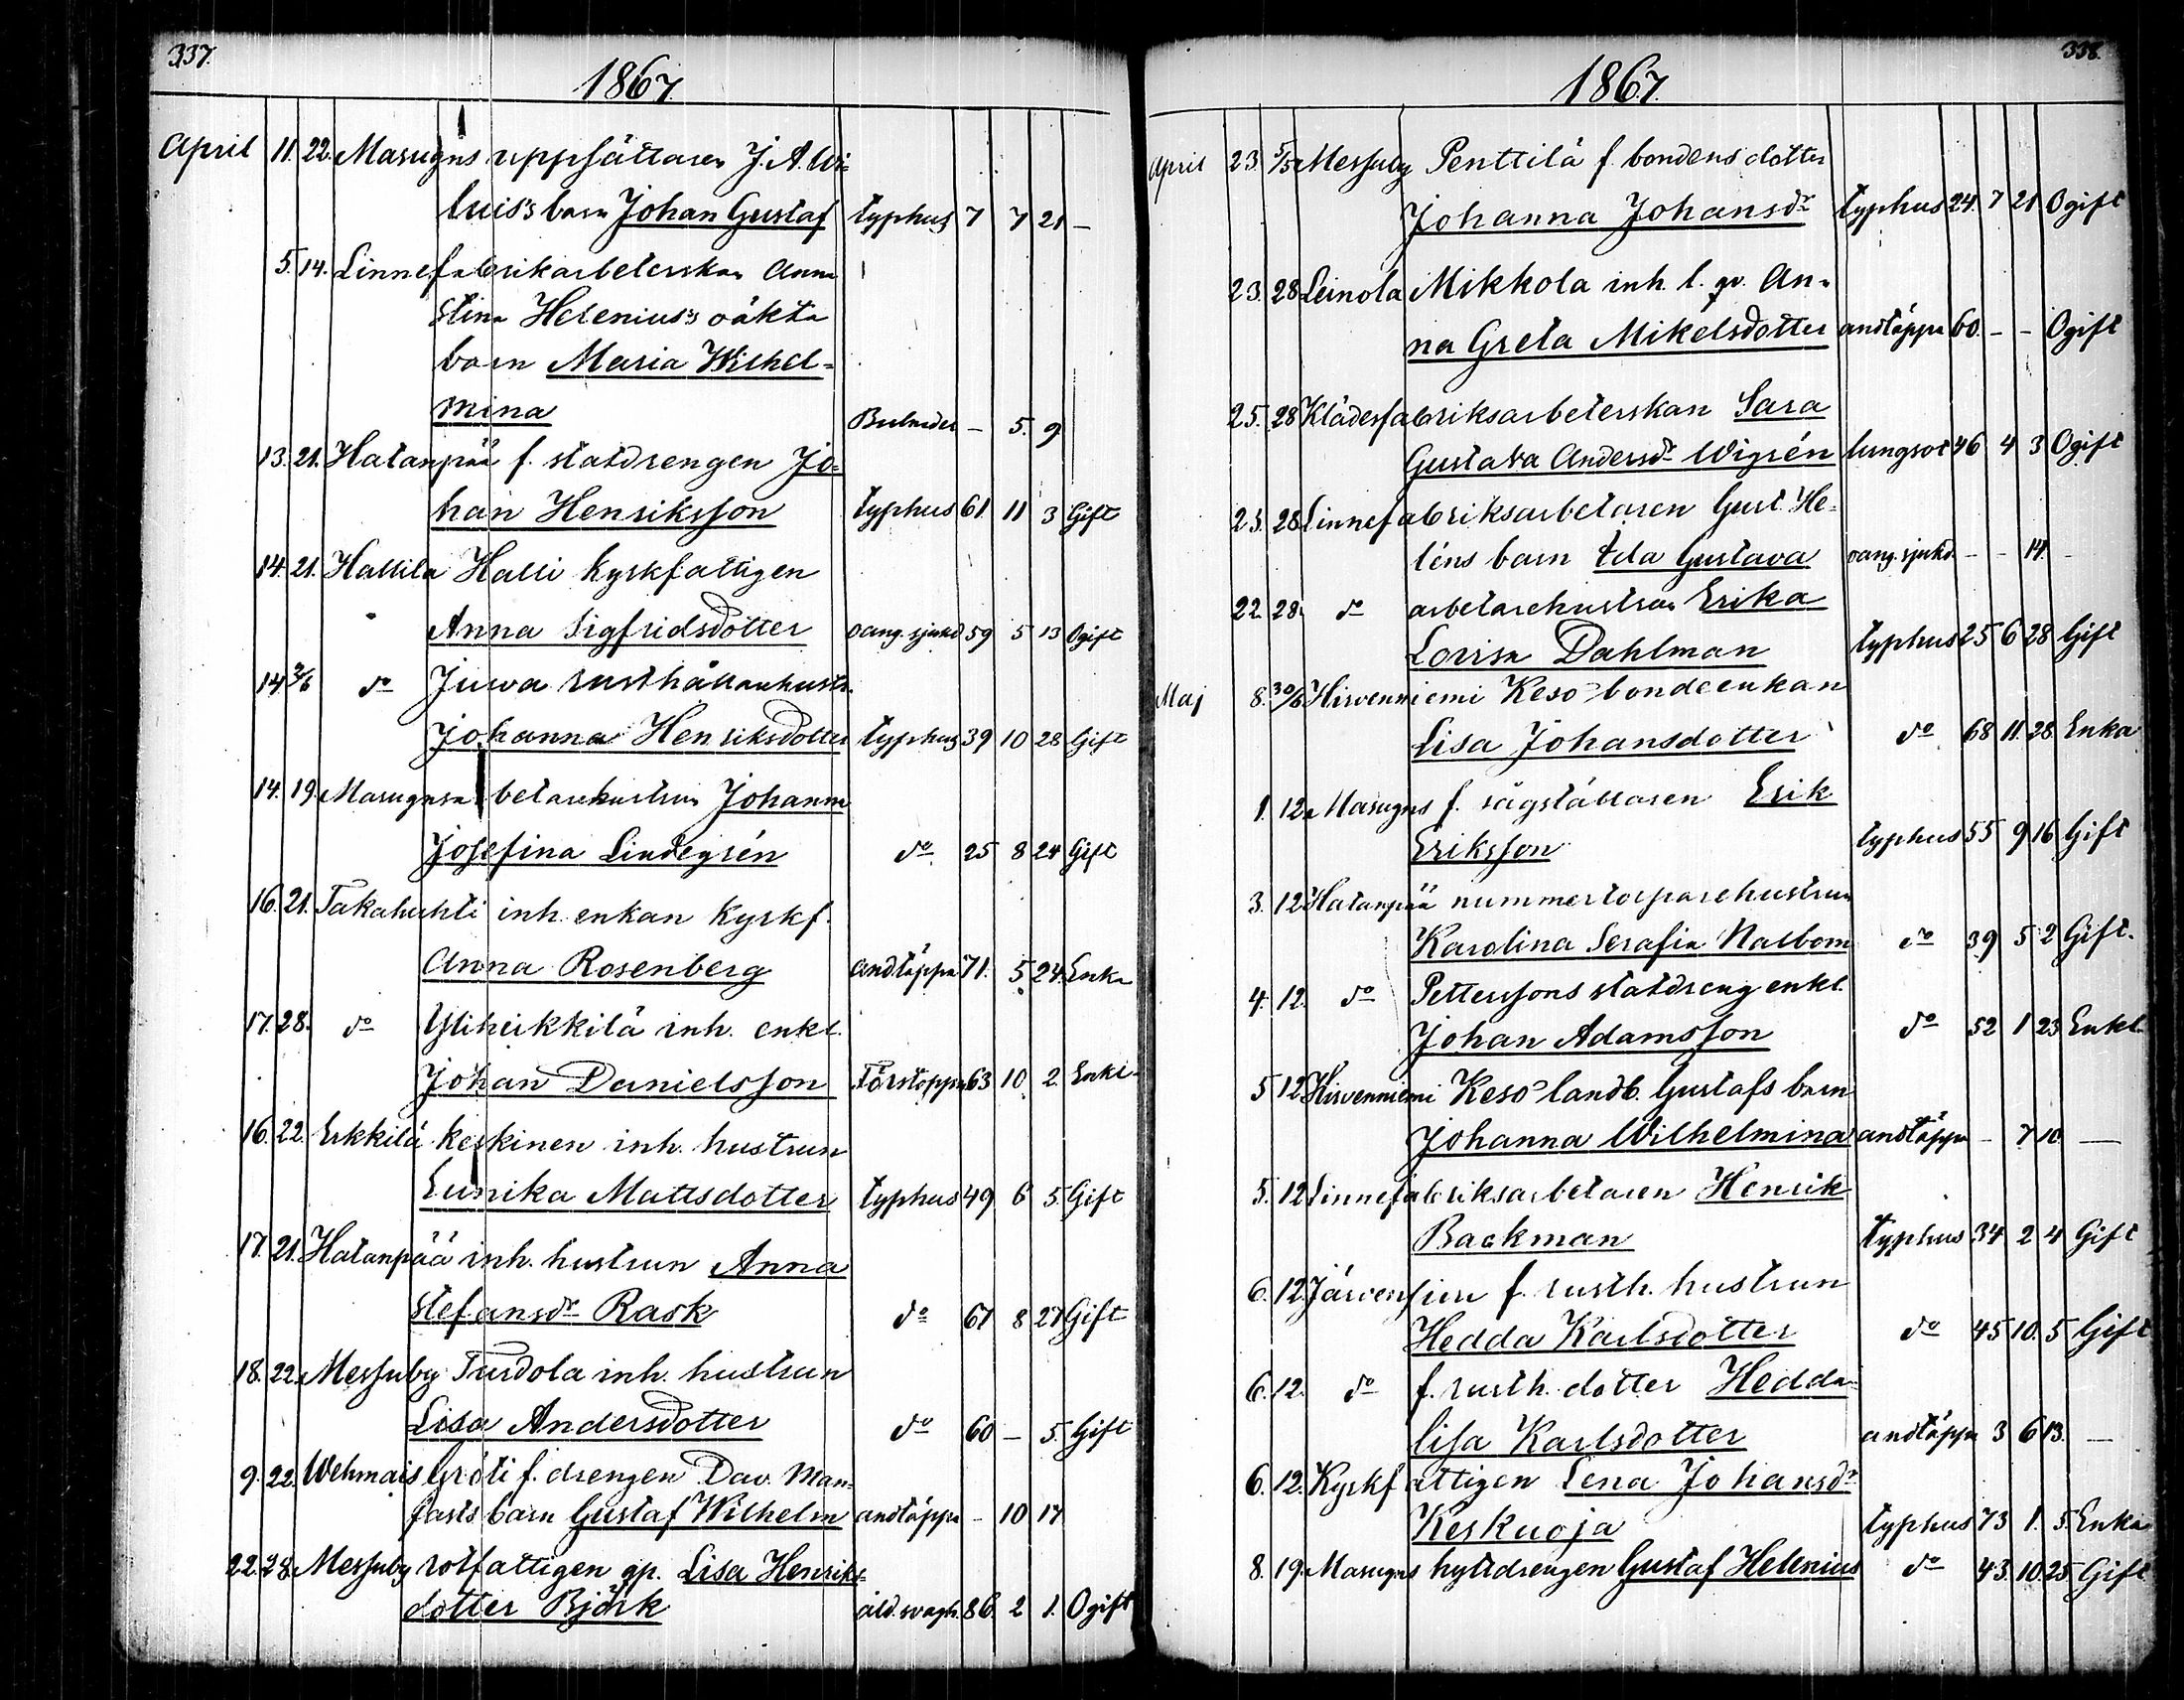 337.
1867.
April 11. 22. Masugns uppsättaren J. A. Wi-
luis's barn Johan Gustaf typhus 7 7 21 –
5. 14. Linnefabrikarbeterskan Anna
Stina Helenius's oäkta
barn Maria Wilhel-
mina – 5. 9
13. 21. Hatanpää f. statdrengen Jo-
han Henriksson typhus 61 11 3 Gift
14. 21. Hallila Halli kyrkfattigen
Anna Sigfridsdotter oang. sjukd 59 5 13 Ogift
14 2/6 do Juva rusthållarehustr.
Johanna Henriksdotter typhus 39 10 28 Gift
14. 19. Masugnsarbetarehustrun Johanna
Josefina Lindegrén do 25 8 24 Gift
16. 21. Takahuhti inh. enkan kyrkf.
Anna Rosenberg andtäppa 71. 5 24 Enka
17. 28. do Yliheikkilä inh. enkl.
Johan Danielsson 63 10 2 Enkl.
16. 22. Erkkilä Keskinen inh. hustrun
Eunika Mattsdotter typhus 49 6 5. Gift
17. 21. Hatanpää inh. hustrun Anna
Stefansdr Rask do 67 8 27 Gift
18. 22. Messuby Turdola inh. hustrun
Lisa Andersdotter do 60 – 5. Gift
9. 22. Wehmais Gröti f. drengen Dav. Man-
fasts barn Gustaf Wilhelm andtäppa – 10 17
22. 28. Messuby rotfattigen gp. Lisa Henriks-
dotter Björk åld. svagh. 86 2 1. Ogift
338.
1867.
April 23. 5/5 Messuby Penttilä f. bondens dotter
Johanna Johansdr typhus 24. 7 21 Ogift
23. 28 Leinola Mikkola inh. l. gp. An-
na Greta Mikelsdotter andtäppa 60. – – Ogift
25. 28 Klädesfabriksarbeterskan Sara
Gustava Andersdr Wigrén lungsot 46 4 3 Ogift
23. 28 Linnefabriksarbetaren Gust. He-
léns barn Ida Gustava oang. sjukd. – – 14. –
22. 28. do arbetarehustrun Erika
Lovisa Dahlman typhus 25 6 28 Gift
Maj 8. 30/6 Hirvenniemi Keso bondeenkan
Lisa Johansdotter do 68 11. 28. Enka
1. 12. Masugns f. sågställaren Erik
Eriksson typhus 55 9 16 Gift
3. 12 Hatanpää nummertorparehustrun
Karolina Serafia Nalbom do 39 5 2 Gift.
4. 12. do Petterssons statdreng enkl.
Johan Adamsson do 52 1 23 Enkl.
5 12 Hirvenniemi Keso landb. Gustafs barn
Johanna Wilhelmina andtäppa – 7 10 –
5. 12 Linnefabriksarbetaren Henrik
Backman typhus 34 2 4 Gift
6. 12 Järvensivu f. rusth. hustrun
Hedda Karlsdotter do 45 10. 5 Gift
6. 12. do f. rusth. dotter Hedda
Lisa Karlsdotter andtäppa 3 6 13. –
6. 12. Kyrkfattigen Lena Johansdr
Keskuoja typhus 73 1. 5. Enka
8. 19. Masugns hyttdrengen Gustaf Helenius do 43. 10. 25 Gift